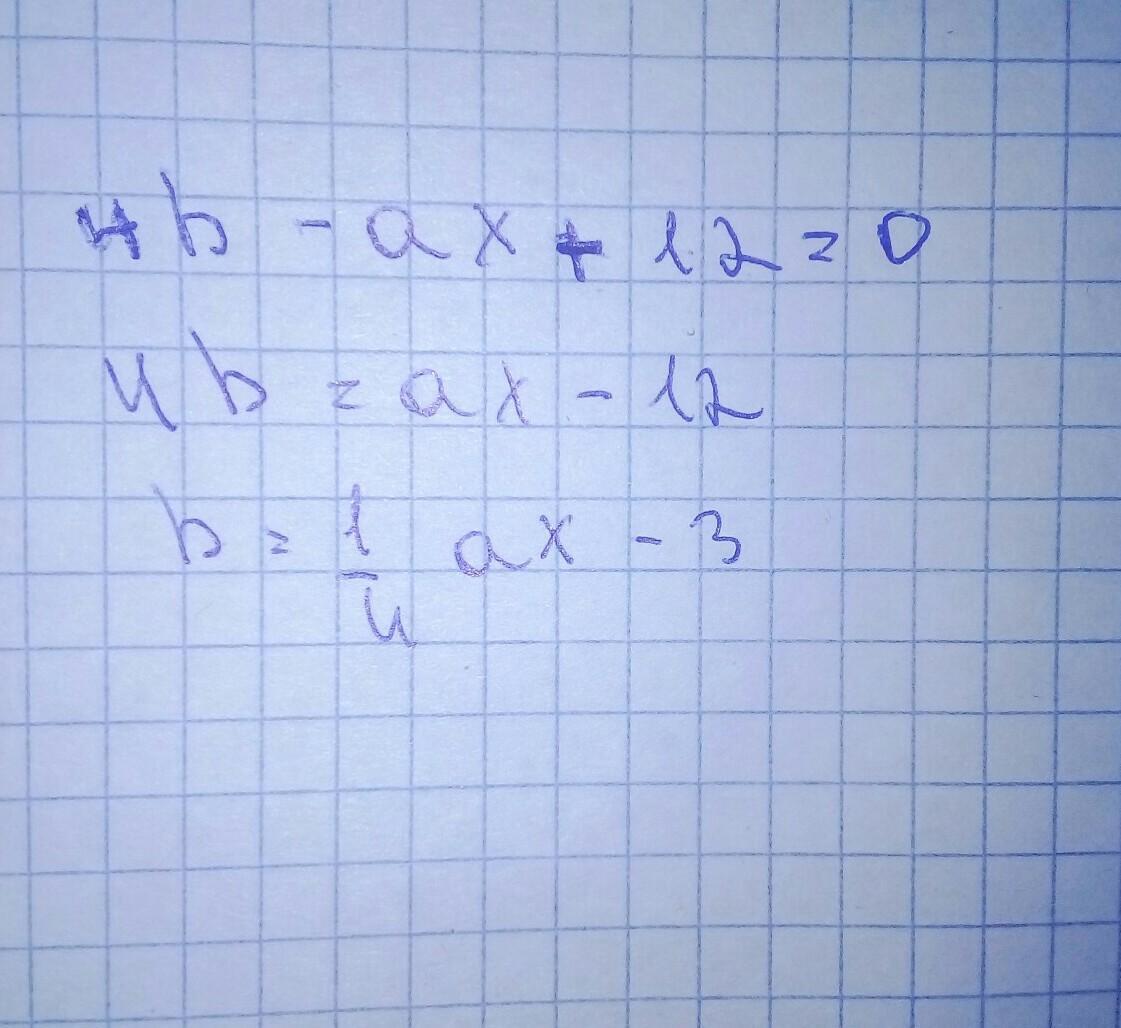 4b - ax + 12 = 0
4b = ax - 12
b = 1/4 ax - 3